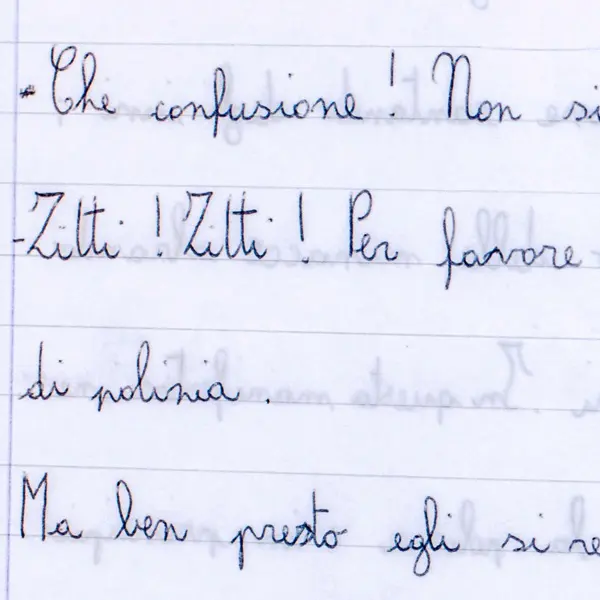 - Che confusione! Non si
- Zitti! Zitti! Per favore
di polizia.
Ma ben presto egli si re